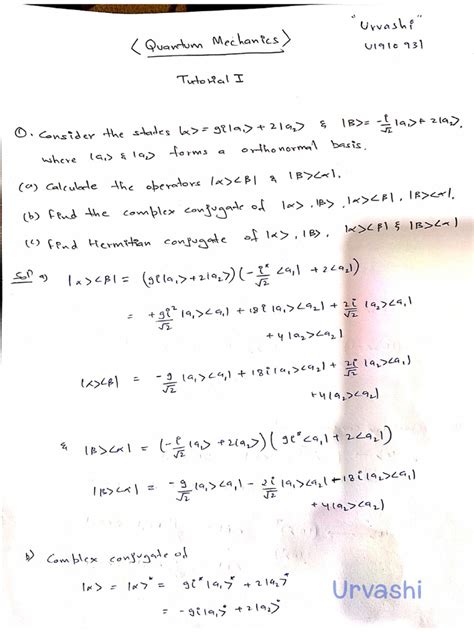 "Urvashi"
< Quantum Mechanics >
U1910931
Tutorial I
①. Consider the states |α> = 9i|a₁> + 2|a₂> & |β> = -i/√2 |a₁> + 2|a₂>,
where |a₁> & |a₂> forms a orthonormal basis.
(a) Calculate the operators |α><β| & |β><α|.
(b) Find the complex conjugate of |α>, |β>, |α><β|, |β><α|.
(c) Find Hermitian conjugate of |α>, |β>, |α><β| & |β><α|
Solⁿ a) |α><β| = (9i|a₁> + 2|a₂>) (-i*/√2 <a₁| + 2<a₂|)
= +9i²/√2 |a₁><a₁| + 18i|a₁><a₂| + 2i/√2 |a₂><a₁|
+ 4|a₂><a₂|
|α><β| = -9/√2 |a₁><a₁| + 18i|a₁><a₂| + 2i/√2 |a₂><a₁|
+ 4|a₂><a₂|
& |β><α| = (-i/√2 |a₁> + 2|a₂>) (9i*<a₁| + 2<a₂|)
|β><α| = -9/√2 |a₁><a₁| - 2i/√2 |a₁><a₂| + -18i|a₂><a₁|
+ 4|a₂><a₂|
b) Complex conjugate of
|α> = |α>* = 9i*|a₁>* + 2|a₂>*
= -9i|a₁>* + 2|a₂>*
Urvashi